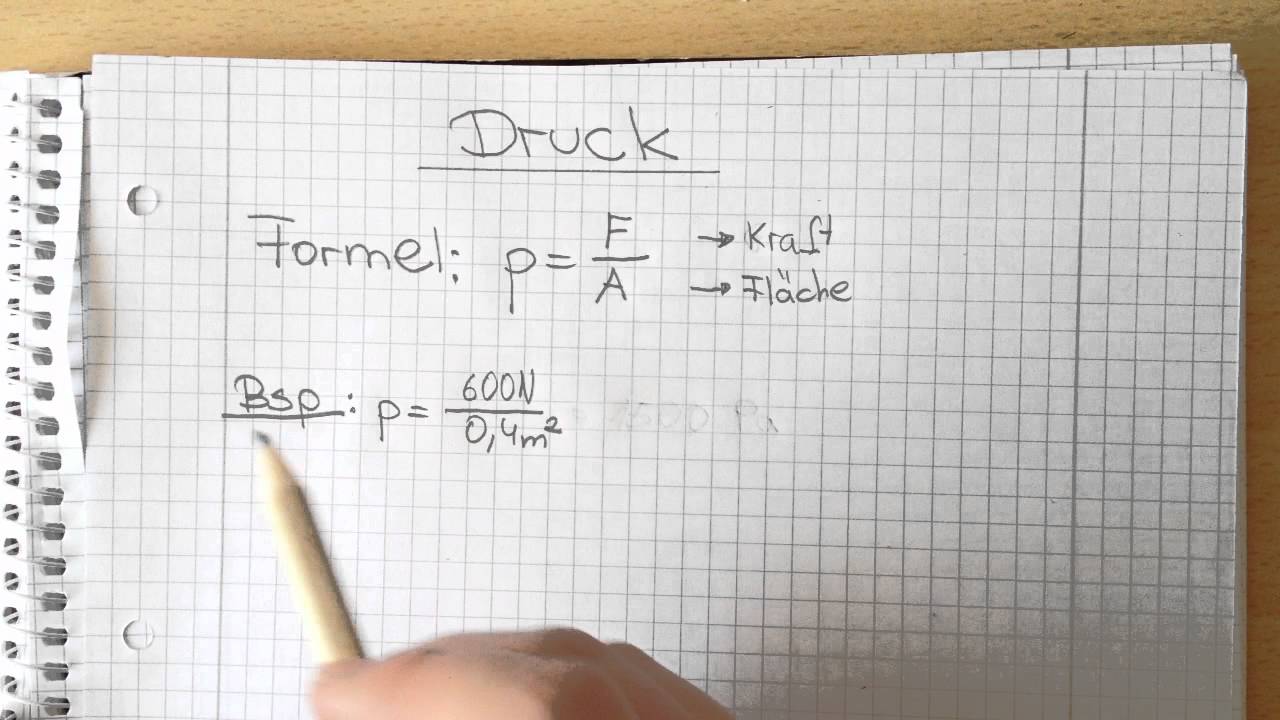 Druck
Formel: p = F/A → Kraft → Fläche
Bsp: p = 600N/0,4m² = 1500 Pa